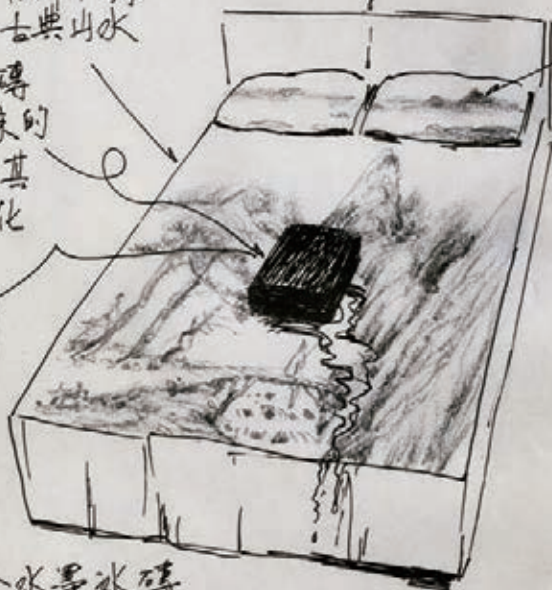 古典山水
磚
來的
其
化
水墨冰磚